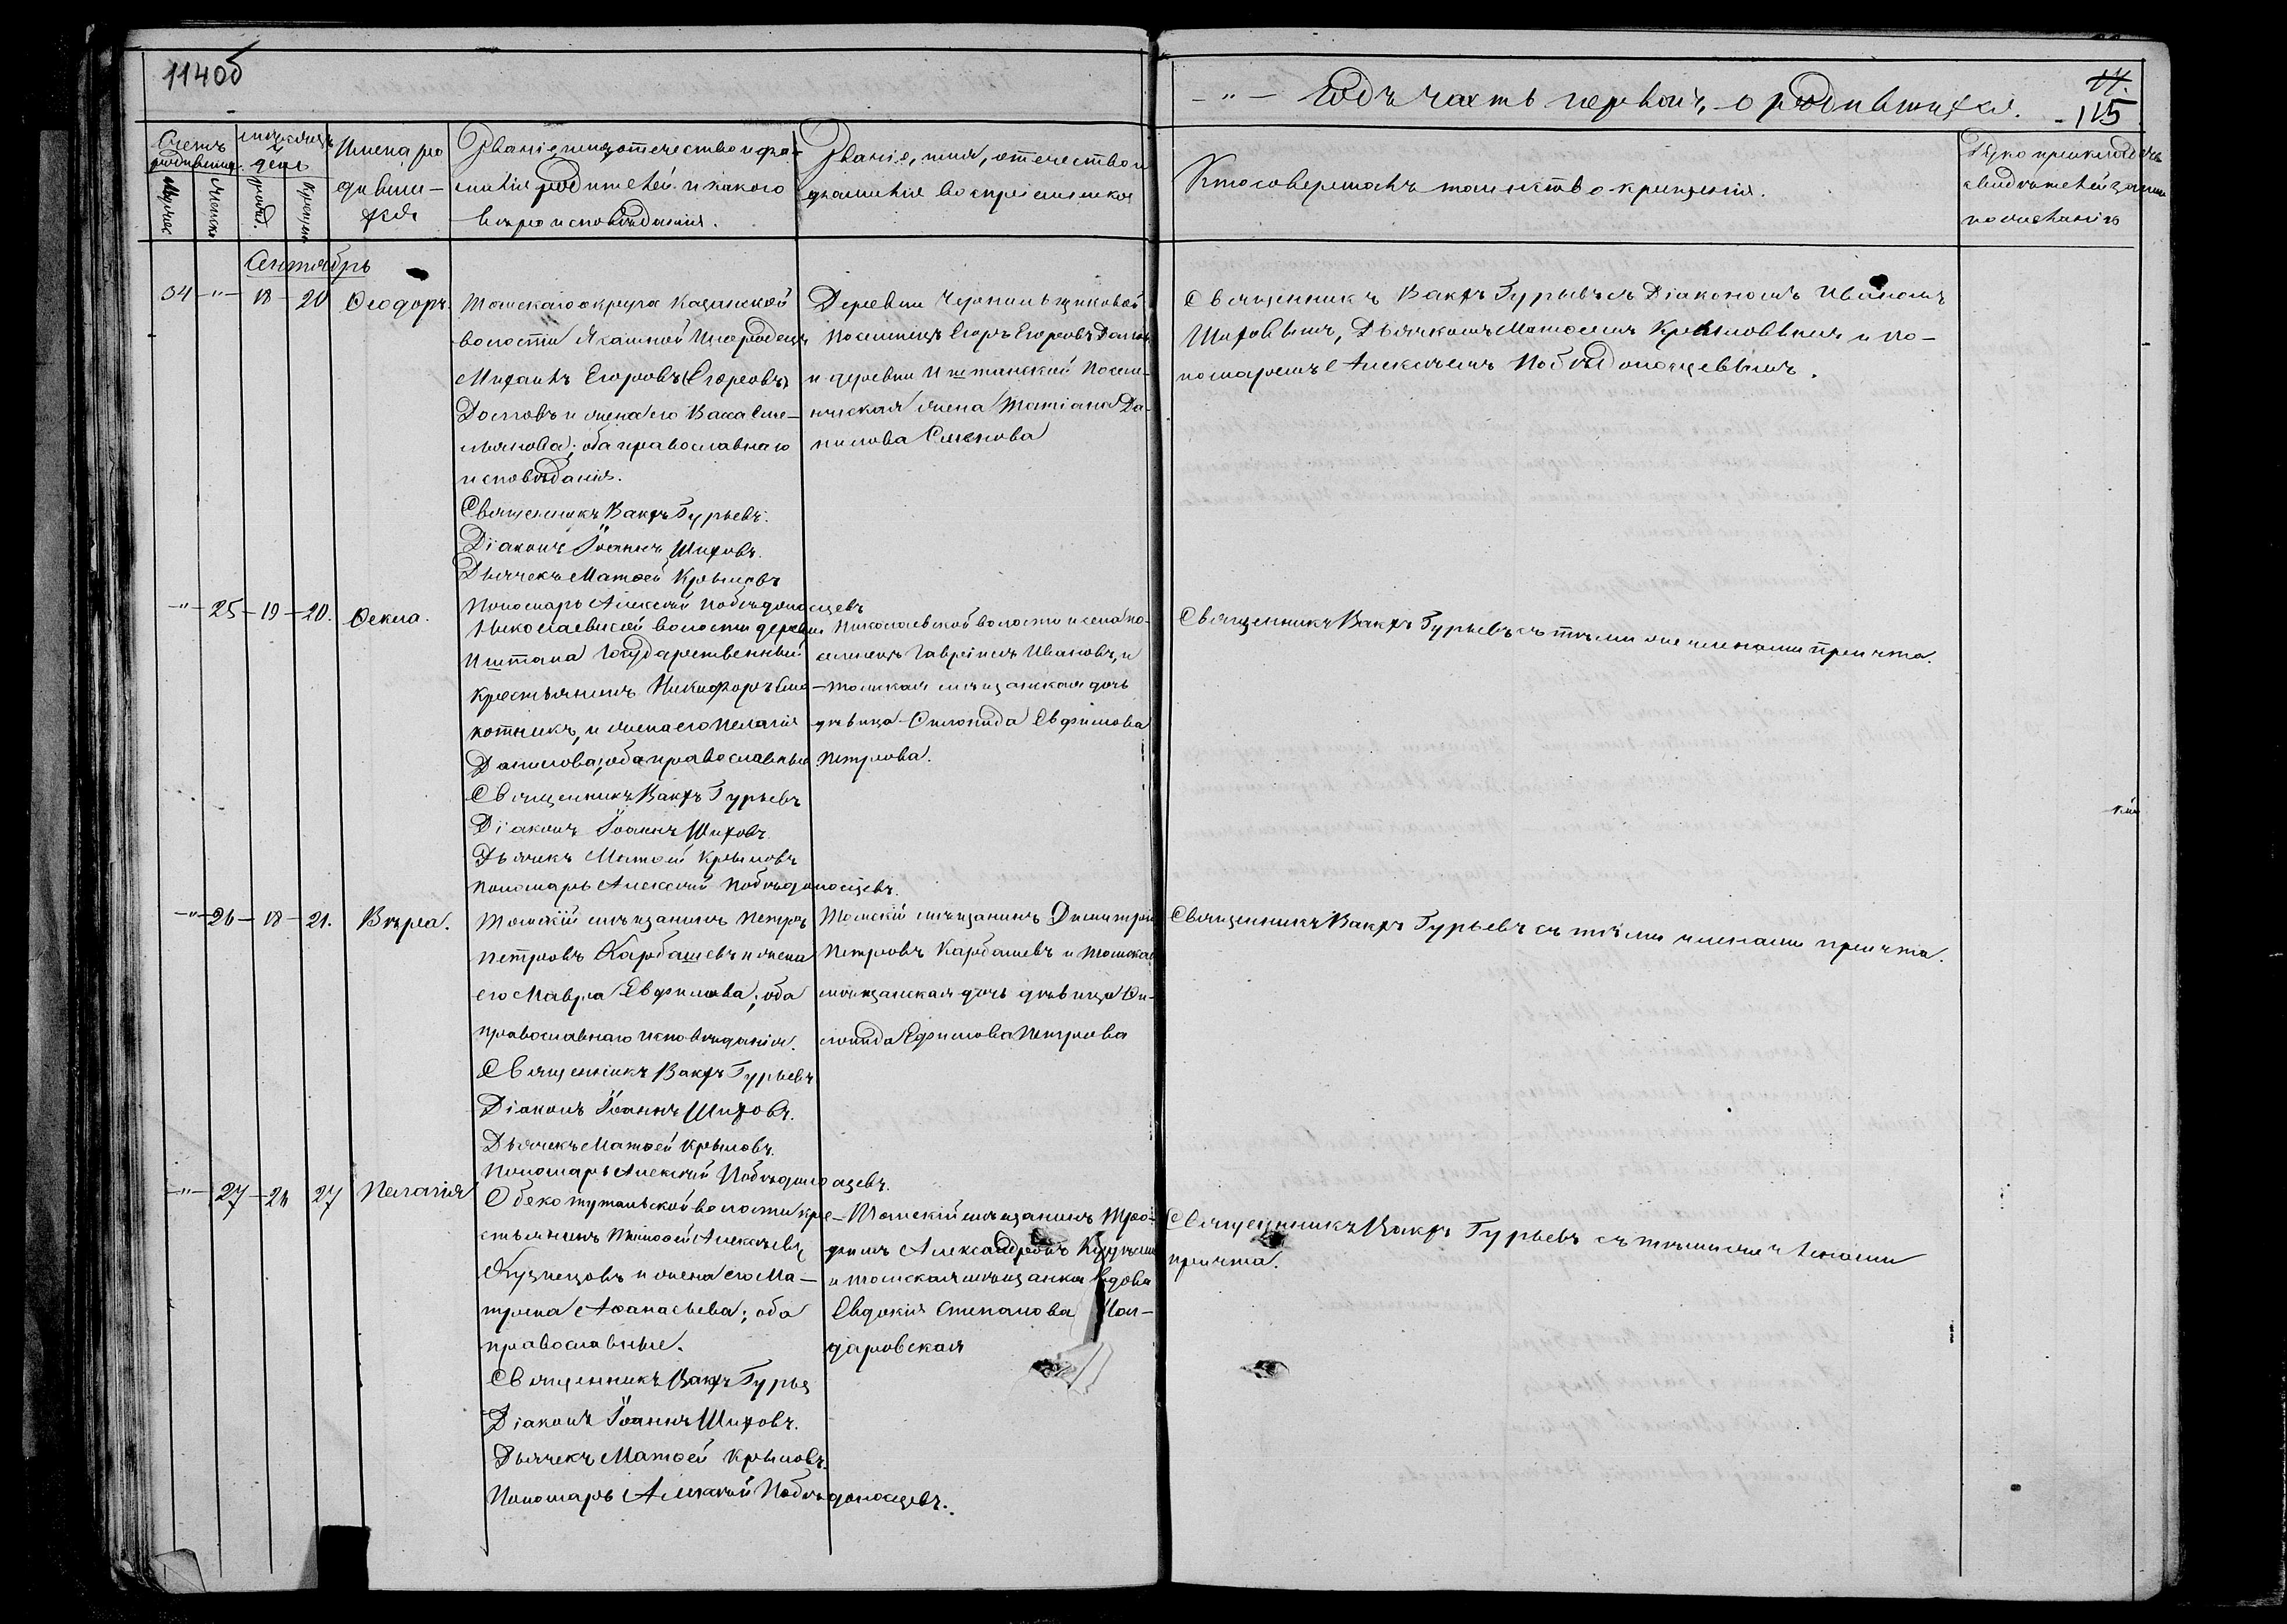 114об
- " - Годъ часть первой, о родившихся.
17.
115
Счетъ родившихся.
Мужеск.
Женска
месяцъ и день
рожд.
крещен.
Имена родившихся
Званіе, имя, отечество и фамилія родителей и какого вѣроисповѣданія.
Званіе, имя, отечество и фамилія воспріемников
Кто совершалъ таинство крещенія.
Рукоприкладство свидѣтелей записи по желанію
Сентябрь
34 - " - 18 - 20 Ѳеодоръ.
Томскаго округа Казанской
волости Якашиной Инородецъ
Михаилъ Егоровъ (Егоровъ)
и жена его Васса Еме-
льянова; оба православнаго
исповѣданія.
Священникъ Вакхъ Гурьевъ.
Діаконъ Іоаннъ Шиховъ.
Дьячекъ Матѳей Крыловъ
Пономарь Алексѣй Побѣдоносцевъ
Деревни Чернильщиковой
Поселенецъ Егоръ Егоровъ
и деревни Иштанской Посел-
ническая жена Татіана Да-
нилова Семенова
Священникъ Вакхъ Гурьевъ съ Діакономъ Иваномъ
Шиховымъ, Дьячкомъ Матѳеемъ Крыловымъ и по-
номаремъ Алексѣемъ Побѣдоносцевымъ.
- " - 25 - 19 - 20. Ѳекла.
Николаевской волости деревни
Иштана Государственный
крестьянинъ Никифоръ
и жена его Пелагія
Данилова; оба православные
Священникъ Вакхъ Гурьевъ
Діаконъ Іоаннъ Шиховъ
Дьячекъ Матѳей Крыловъ
Пономарь Алексѣй Побѣдоносцевъ.
Николаевской волости и села по-
селенецъ Гавріилъ Ивановъ, и
томская мѣщанская дочь
дѣвица Евфимова
Петрова.
Священникъ Вакхъ Гурьевъ съ тѣми же членами причта.
- " - 26 - 18 - 21. Вѣра.
Томскій мѣщанинъ Петръ
Петровъ Карбашевъ и жена
его Мавра Евфимова; оба
православнаго исповѣданія.
Священникъ Вакхъ Гурьевъ
Діаконъ Іоаннъ Шиховъ.
Дьячекъ Матѳей Крыловъ.
Пономарь Алексѣй Побѣдоносцевъ.
Томскій мѣщанинъ Димитрій
Петровъ Карбашевъ и томская
мѣщанская дочь дѣвица
Ефимова Петрова
Священникъ Вакхъ Гурьевъ съ тѣми членами причта.
- " - 27 - 24 27 Пелагія
волости кре-
стьянинъ Тимоѳей Алексѣевъ
Кузнецовъ и жена его Ма-
трена Аѳанасьева; оба
православные.
Священникъ Вакхъ Гурьев
Діаконъ Іоаннъ Шиховъ.
Дьячекъ Матѳей Крыловъ.
Пономарь Алексѣй Побѣдоносцевъ.
Томскій мѣщанинъ Тро-
фимъ Александровъ
и томская мѣщанка вдова
Евдокія Степанова
Священникъ Вакхъ Гурьевъ съ тѣми же членами
причта.